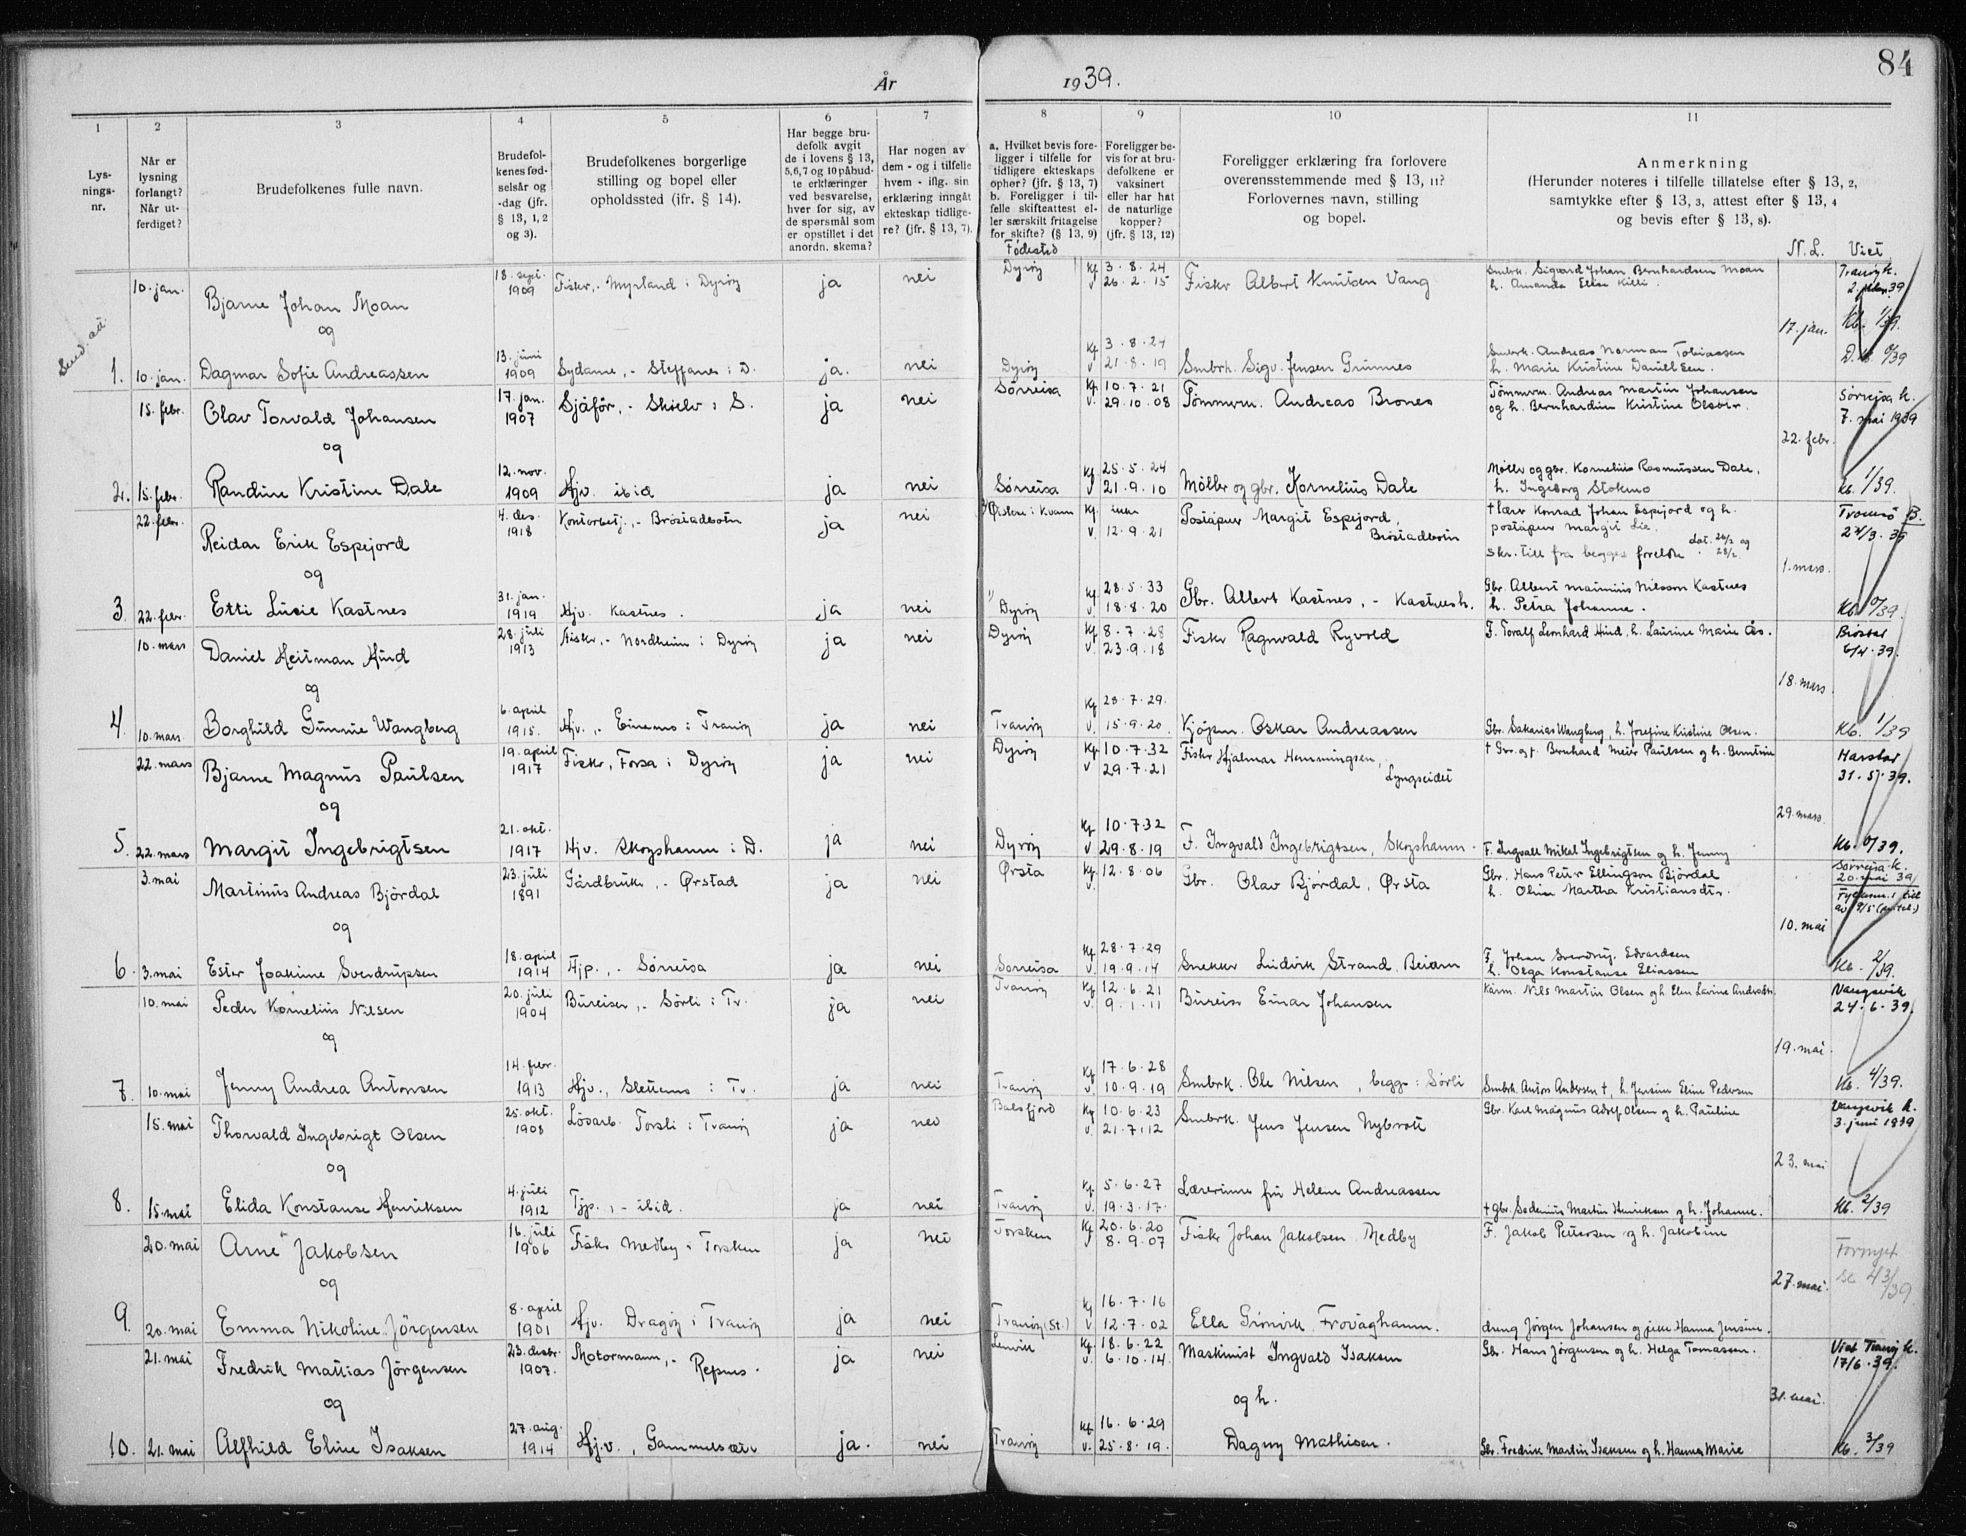 84
År 1939.
1 2 3 4 5 6 7 8 9 10 11
Lys-
nings-
nr.
Når er
lysning
forlangt?
Når ut-
ferdiget?
Brudefolkenes fulle navn.
Brudefol-
kenes fød-
selsår og
-dag (jfr.
§ 13, 1, 2
og 3).
Brudefolkenes borgerlige
stilling og bopel eller
opholdssted (jfr. § 14).
Har begge bru-
defolk avgit
de i lovens § 13,
5,6,7 og 10 påbud-
te erklæringer
ved besvarelse,
hver for sig, av
de spørsmål som
er opstillet i det
anordn. skema?
Har nogen av
dem - og i tilfelle
hvem - iflg. sin
erklæring inngått
ekteskap tidlige-
re? (jfr. § 13, 7).
a. Hvilket bevis fore-
ligger i tilfelle for
tidligere ekteskaps
ophør? (jfr. § 13, 7)
b. Foreligger i til-
felle skifteattest el-
ler særskilt fritagelse
for skifte? (§ 13, 9)
Fødested
Foreligger be-
vis for at bru-
defolkene er
vaksinert
eller har hat
de naturlige
kopper?
(jfr. § 13, 12)
Foreligger erklæring fra forlovere
overensstemmende med § 13, 11?
Forlovernes navn, stilling
og bopel.
Anmerkning
(Herunder noteres i tilfelle tillatelse efter § 13, 2,
samtykke efter § 13, 3, attest efter § 13, 4
og bevis efter § 13, 8).
N. L. Viet
10. jan. Bjarne Johan Moan 18. sept. 1909 Fiskr., Myrland i Dyrøy ja nei Dyrøy Kf 3.8.24 v 26.2.15 Fiskr Albert Knutsen Vang Smbrk. Sigvard Johan Bernhardsen Moan
h. Amanda Elise Killi. Tranøy k.
2. 39
og 17. jan. Kb. 1/39.
1. 10. jan. Dagmar Sofie Andreassen 13. juni 1909 Sydame, - Steffanes i D. ja. nei Dyrøy Kf 3.8.24 v 21.8.19 Smbrk. Sigv. Jensen Grimnes Smbrk. Andreas Norman Tobiassen
h. Marie Kristine Danielsen. 0/39
15. febr. Olav Torvald Johansen 17. jan. 1907 Sjåfør, - Skielv i S. ja nei Sørreisa Kf 10.7.21 v. 29.10.08 Tømmrm. Andreas Brones Tømmrm. Andreas Martin Johansen
og h. Bernhardine Kristine Sørreisa k.
7. mai 1939
og 22. febr.
2. 15. febr. Randine Kristine Dale 12. nov. 1909 Hjv. ibid ja nei Sørreisa Kf 25.5.24 v 21.9.10 Möller og gbr. Kornelius Dale Möller og gbr. Kornelius Rasmussen Dale,
h. Ingeborg Stokmo Kb. 1/39.
22. febr. Reidar Erik Espejord 4. des. 1918 Kontorbetj., - Brøstadbotn ja nei Kvam Kf. v. 12.9.21 Poståpner Margit Espejord,
Brøstadbotn † lærer Konrad Johan Espejord og h.
poståpner Margit Lie.
skr. till fra begges foreldre dat. og Tromsø B.
24/3.39
og 1. mars.
3 22. febr. Etti Lucie Kastnes 31. jan. 1919 Hjv. Kastnes. ja nei Dyrøy Kf. 28.5.33 v. 18.8.20 Gbr. Albert Kastnes, - Kastnesh. Gbr. Albert Marinius Nilsson Kastnes
h. Petra Johanne. Kb. 0/39.
10. mars Daniel Heitman Hind 28. juli 1913 Fiskr, - Nordheim i Dyrøy ja nei Dyrøy Kf 8.7.28 v. 23.9.18 Fiskr Ragnvald Ryvold F. Toralf Lernhard Hind, h. Laurine Marie Ås. Brøstad
6/4.39.
og 18. mars
4. 10. mars Borghild Gunnie Wangberg 6. april 1915. Hjv., Einemo i Tranøy ja nei Tranøy Kf 23.7.29. v. 15.9.20. Kjøpm. Oskar Andreassen Gbr. Sakarias Wangberg, h. Josefine Kristine Olsen. Kb. 1/39
22. mars Bjarne Magnus Paulsen 19. april 1917 Fiskr, Forsa i Dyrøy ja nei Dyrøy Kf 10.7.32 v 29.7.21 Fiskr Hjalmar Hemmingsen,
Lyngseidet † Gbr. og f. Bernhard Meier Paulsen og h. Berntine Harstad
31.5.39.
og 29. mars.
5. 22. mars Margit Ingebrigtsen 21. okt. 1917 Hjv. Skogshamn i D. ja nei Dyrøy Kf 10.7.32 v 29.8.19 F. Ingvald Ingebrigtsen, Skogshamn. F. Ingvald Mikal Ingebrigtsen og h. Jenny Kb. 0/39.
3. mai Martinus Andreas Bjørdal 23. juli 1891 Gårdbruk., - Ørstad ja nei Ørsta Kf. v. 12.8.06 Gbr. Olav Bjørdal, Ørsta Gbr. Hans Petter Ellingson Bjørdal
h. Oline Martha Kristiansdtr. Sørreisa k.
20. mai 39
Fylkesm. till
av 9/5
og 10. mai
6. 3. mai Ester Joakime Sverdrupsen 18. april 1914 Hjp., - Sørreisa ja nei Sørreisa Kf 28.7.29 v. 19.9.14 Snekker Ludvik Strand, Beiarn F. Johan Sverdrup Edvardsen
h. Olga Konstanse Eliassen Kb. 2/39.
10. mai Peder Kornelius Nilsen 20. juli 1904 Bureiser, - Sørli i Tr. ja nei Tranøy Kf 12.6.21 v 9.1.11 Bureisr Einar Johansen Karm. Nils Martin Olsen og h. Elen Lavine Andreasdtr. Vangsvik
24.6.39.
og 19. mai.
7. 10. mai Jenny Andrea Antonsen 14. febr. 1913 Hjv., Slettemo i Tr. ja nei Tranøy Kf 17.6.28 v 10.9.19 Smbrk. Ole Nilsen, begge i Sørli Smbrk. Anton Andersen †, h. Jensine Eline Pedersen Kb. 4/39.
15. mai Thorvald Ingebrigt Olsen 25. okt. 1908 Løsarb. Torsli i Tranøy ja nei Balsfjord Kf 10.6.23 v. 21.7.12 Smbrk. Jens Jensen Nybrott Gbr. Karl Magnus Adolf Olsen og h. Pauline Vangsvik k.
3. juni 1939
og 23. mai
8. 15. mai Elida Konstanse Henriksen 4. juli 1912 Tjp., - ibid. ja nei Tranøy Kf 5.6.27 v. 19.3.17. Lærerinne fru Helene Andreassen † gbr. Sedenius Martin Henriksen og h. Johanne. Kb. 2/39
20. mai Arne Jakobsen 16. juli 1906 Fiskr Medby i Torsken ja nei Torsken Kf 20.6.20 v 8.9.07 Fiskr Johan Jakobsen, Medby F. Jakob Pettersen og h. Jakobine Fornyet
se 43/39
og 27. mai.
9. 20. mai Emma Nikoline Jörgensen 8. april 1901 Hjv. Dragøy i Tranøy ja nei Tranøy (St.) Kf 16.7.16 v 12.7.02 Ella Grønvik, Frovåghamn. dreng Jørgen Johansen og pike Hanna Jensine.
21. mai Fredrik Mattias Jörgensen 23. desbr. 1907. Motormann, - Refsnes. ja nei Lenvik Kf. 18.6.22 v. 6.10.14. Maskinist Ingvald Isaksen Gbr. Hans Jørgensen og h. Helga Tomassen. Viet Tranøy k.
17/6.39.
og og h. 31. mai.
10. 21. mai Alfhild Eline Isaksen 27. aug. 1914 Hj.v., Gammelseter ja. nei Tranøy Kf 16.6.29 v. 25.8.19. Dagny Mathisen. Gbr. Fredrik Martin Isaksen og h. Hanna Marie Kb. 3/39